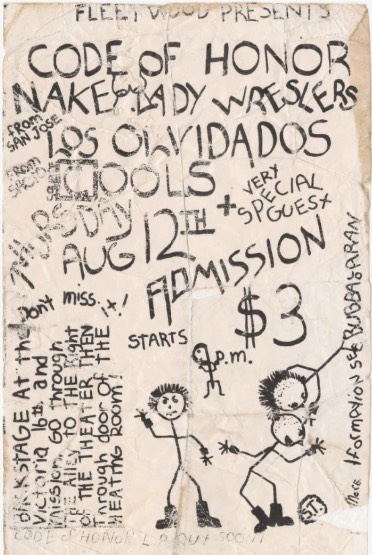 FLEETWOOD PRESENTS
CODE OF HONOR
NAKED LADY WRESLERS
FROM
SAN JOSE
LOS OLVIDADOS
FROM
OOLS
+ VERY
SPECIAL
GUEST
THURSDAY
AUG 12TH
ADMISSION
$3
Dont miss it!
STARTS
p.m.
BACKSTAGE At the
Victoria 16th and
Mission. Go through
the Alley to THE Right
of THE THEATER THEN
Through door of THE
HEATING ROOM!
More Iformation see BUBBA
ST.
CODE OF HONOR L.P. OUT SOON!